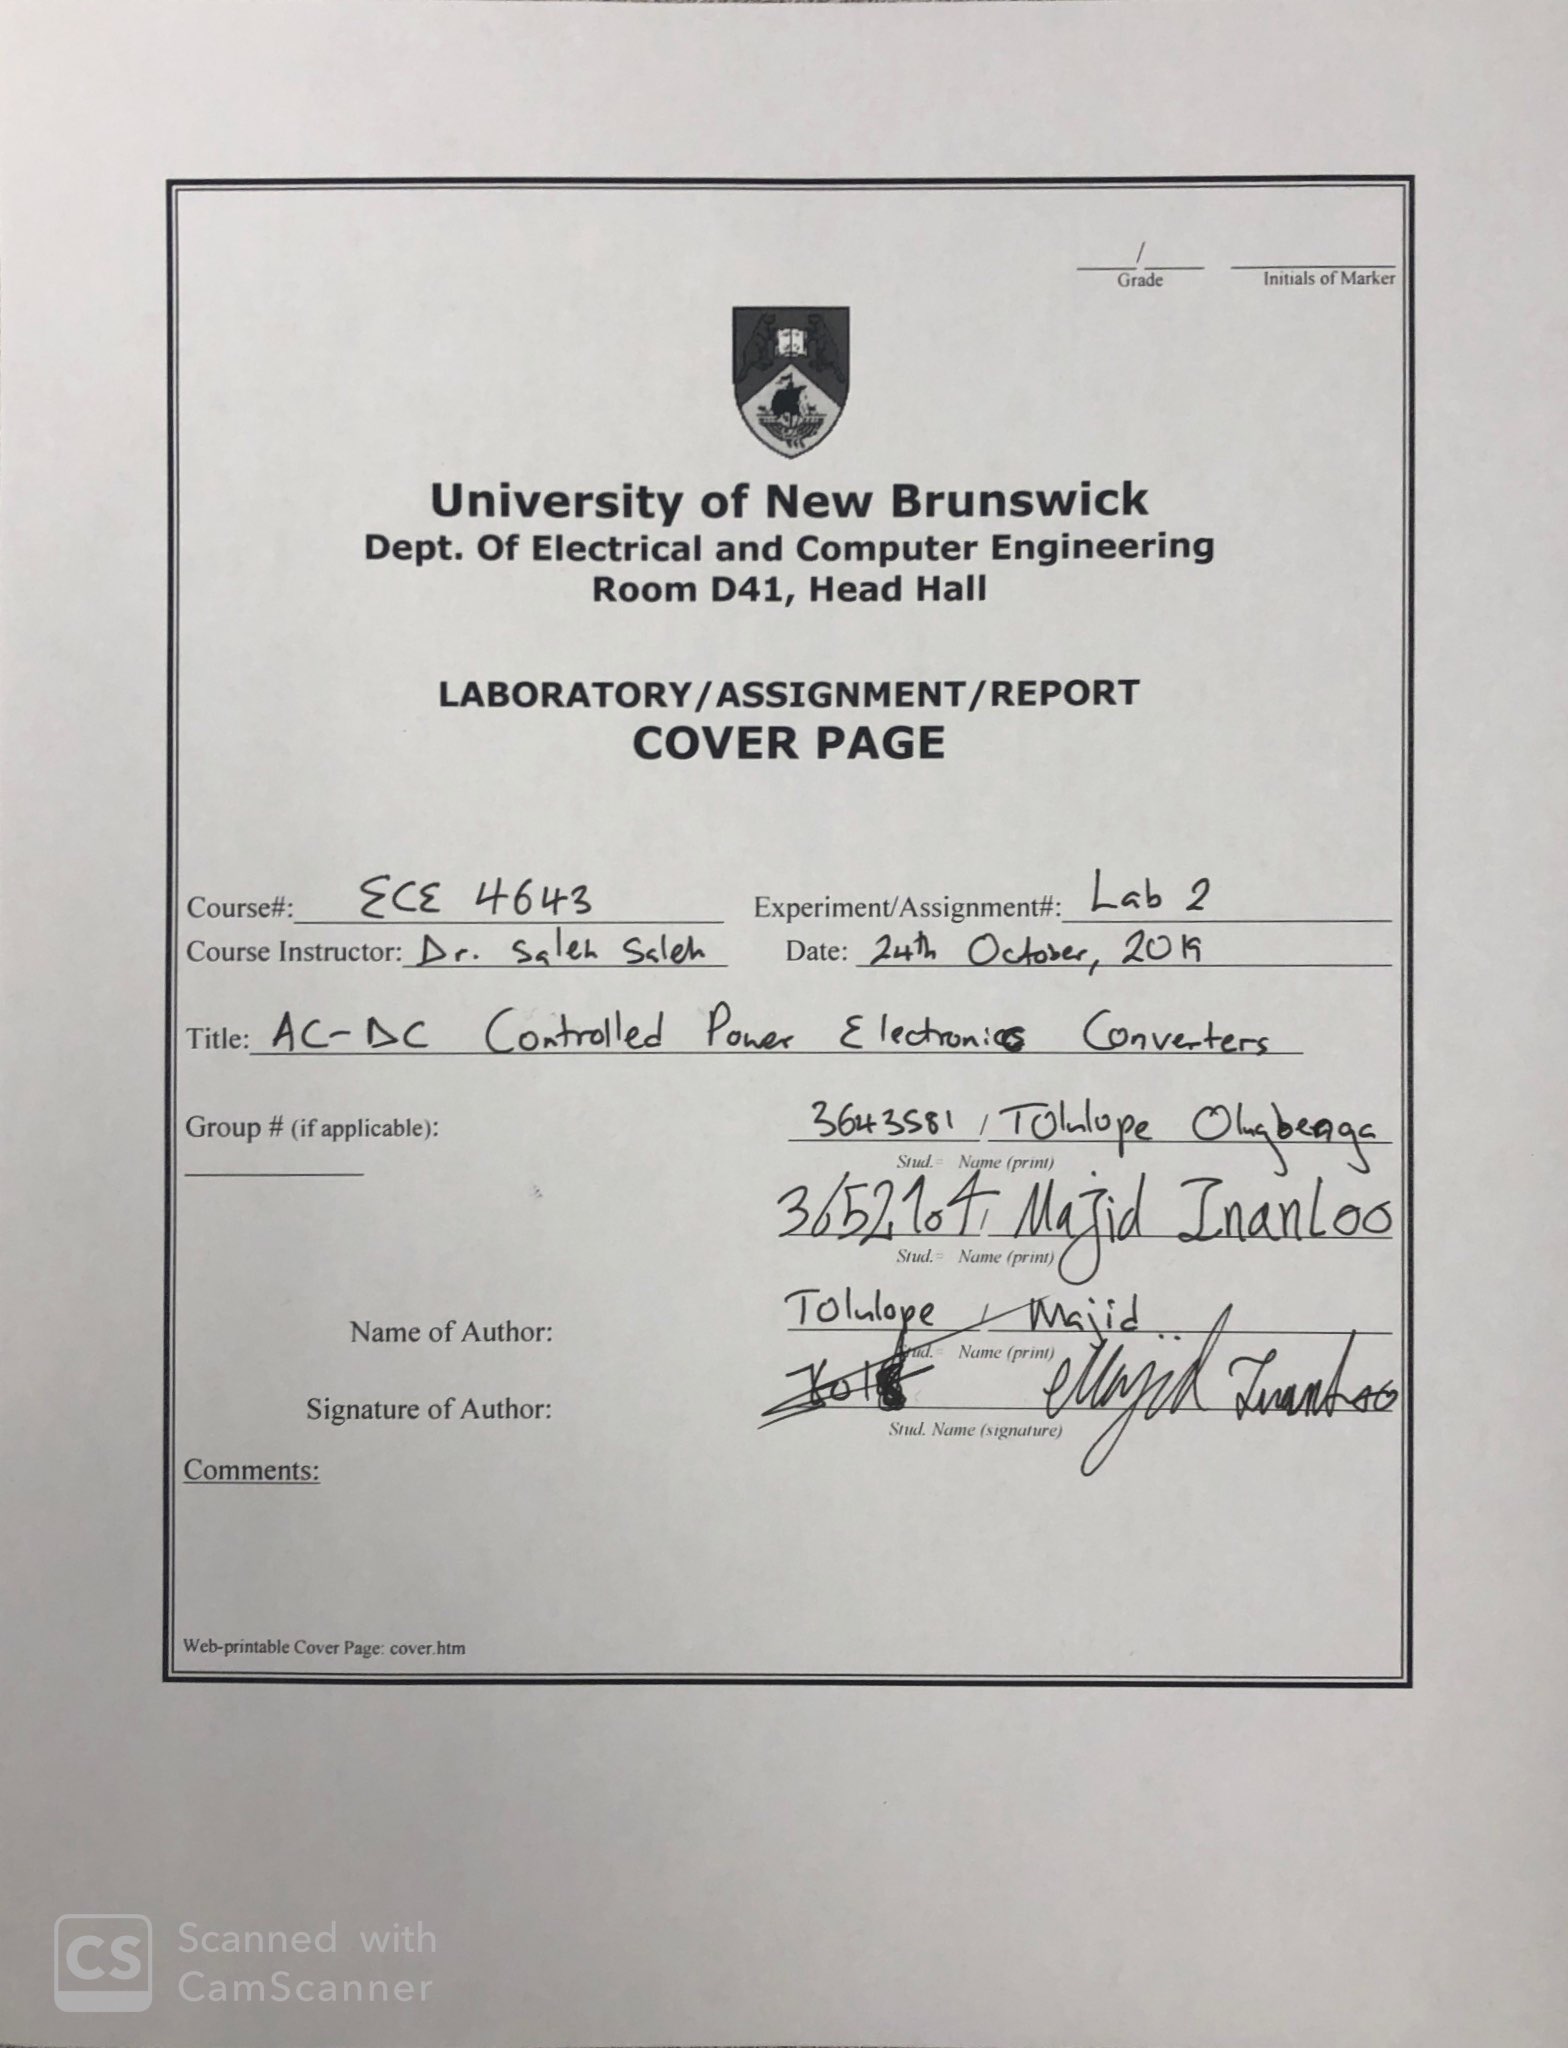 /
Grade Initials of Marker
University of New Brunswick
Dept. Of Electrical and Computer Engineering
Room D41, Head Hall
LABORATORY/ASSIGNMENT/REPORT
COVER PAGE
Course#: ECE 4643 Experiment/Assignment#: Lab 2
Course Instructor: Dr. Saleh Saleh Date: 24th October, 2019
Title: AC-DC Controlled Power Electronics Converters
Group # (if applicable): 3643581 / Tolulope Olugbenga
Stud.# Name (print)
3652104 / Majid InanLoo
Stud.# Name (print)
Name of Author: Tolulope / Majid
Stud.# Name (print)
Signature of Author: Majid InanLoo
Stud. Name (signature)
Comments:
Web-printable Cover Page: cover.htm
CS Scanned with
CamScanner